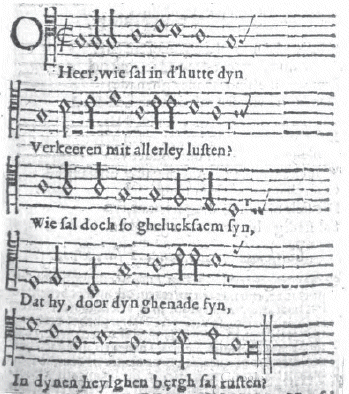 O Heer, wie sal in d'hutte dyn
Verkeeren mit allerley lusten?
Wie sal doch so ghelucksaem syn,
Dat hy, door dyn ghenade syn,
In dynen heylghen bergh sal rusten?